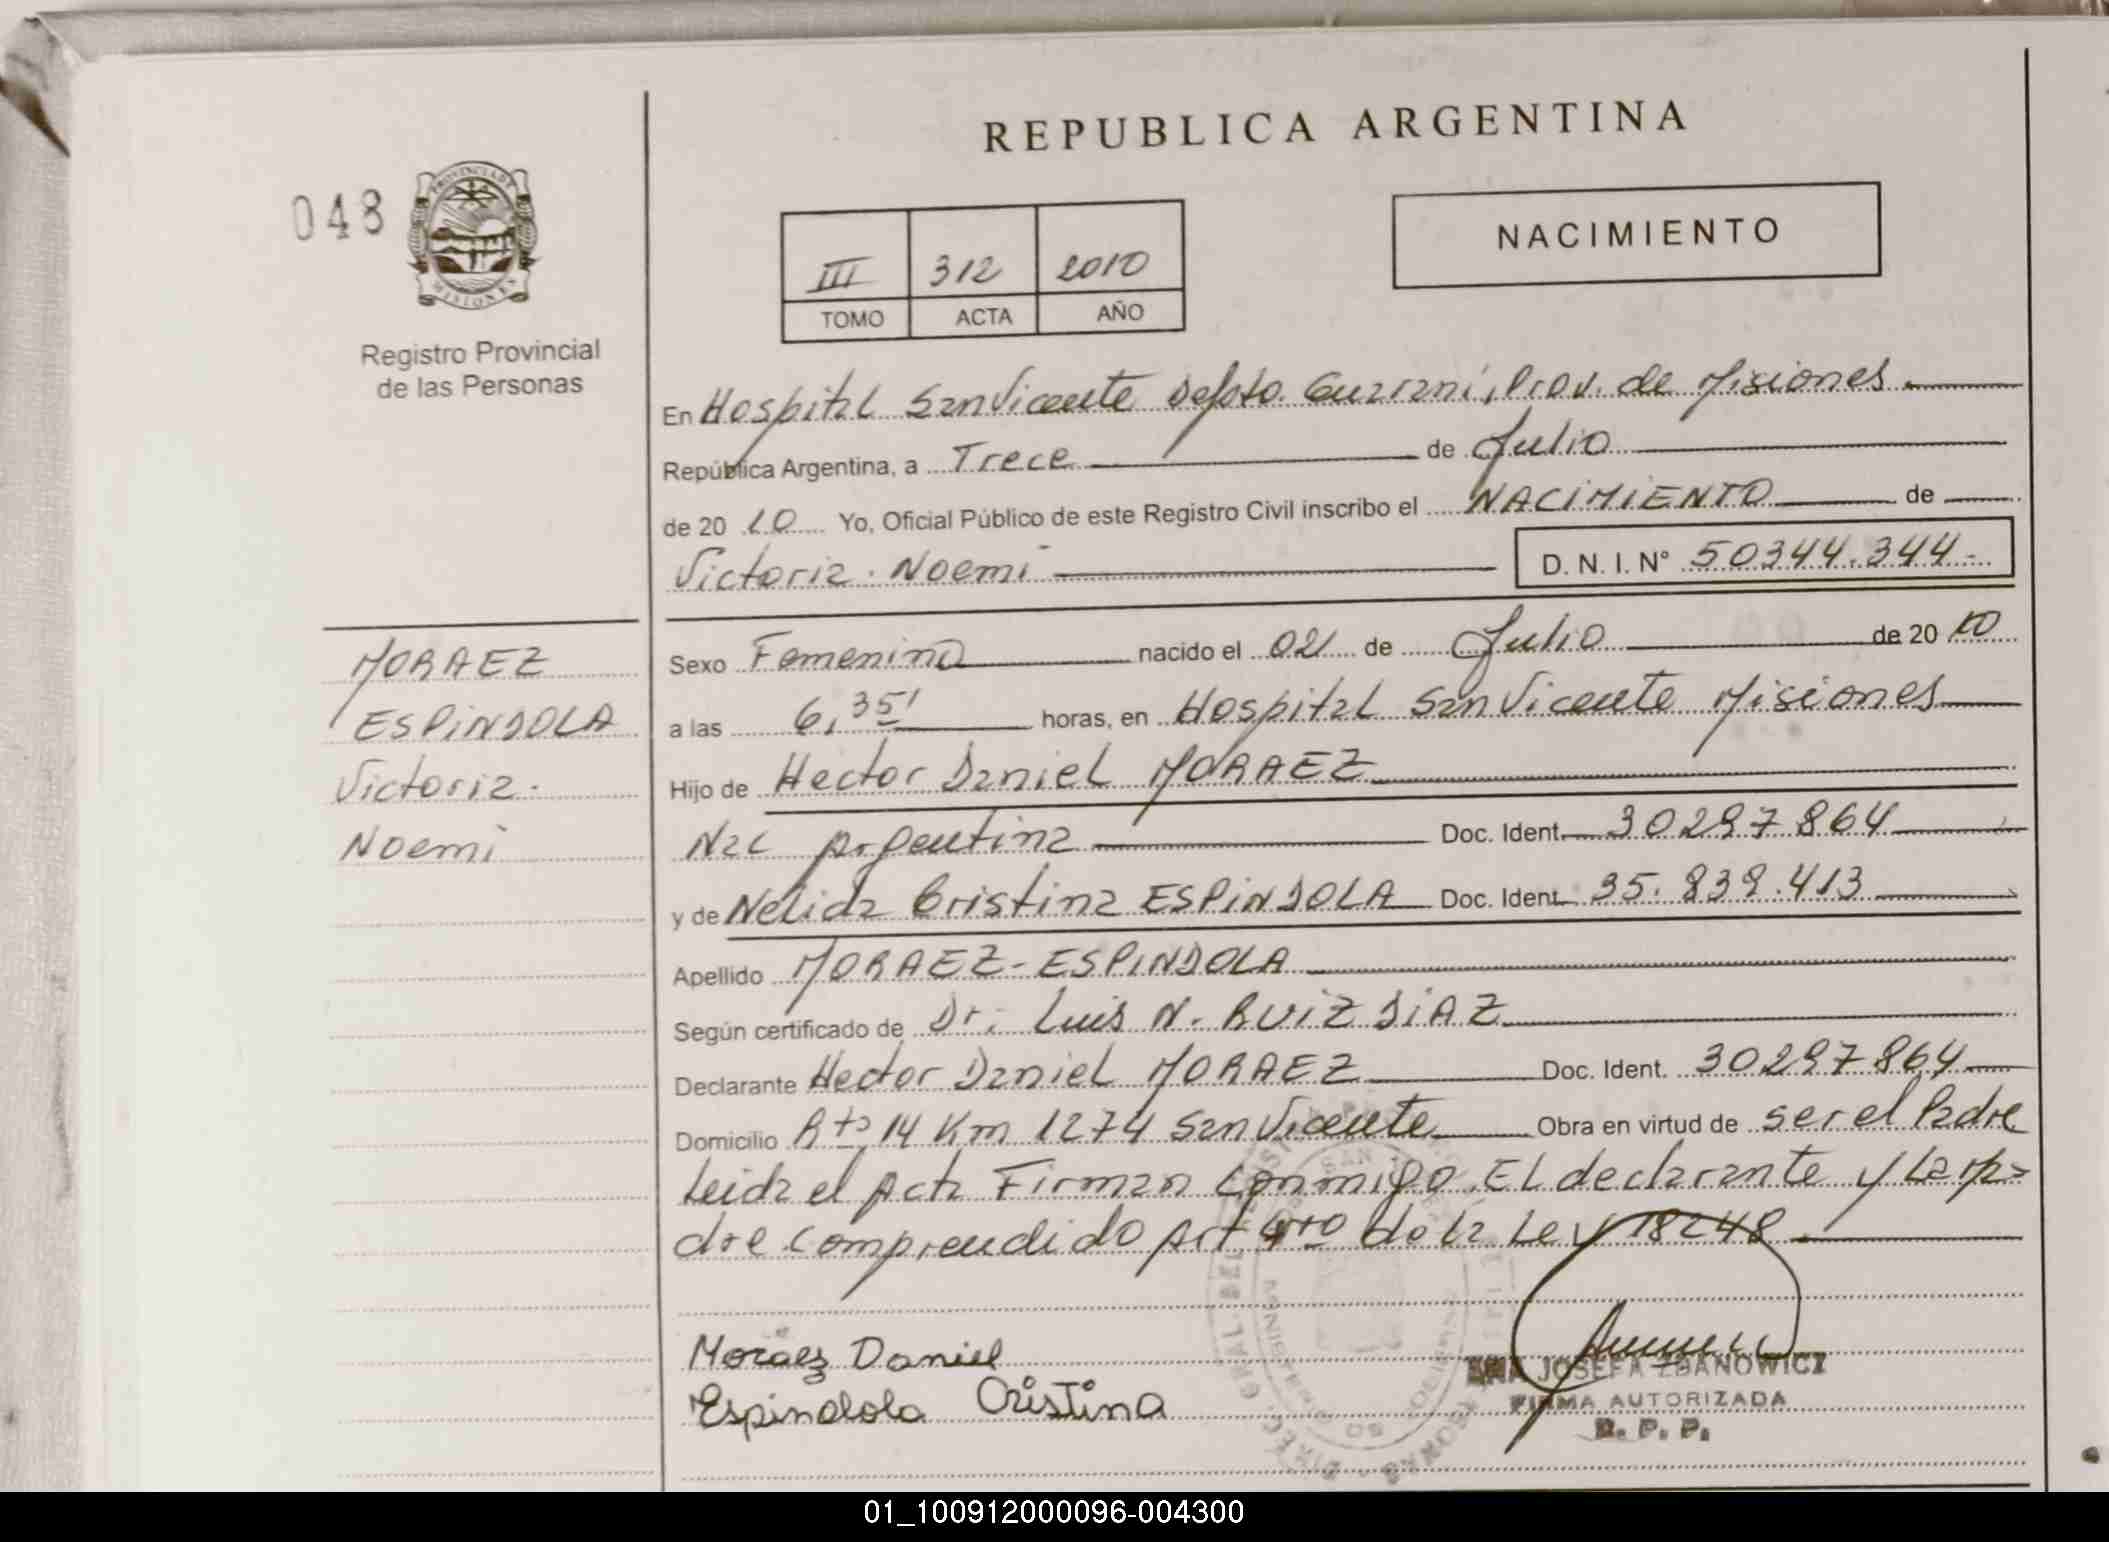 REPUBLICA ARGENTINA
048
PROVINCIA DE MISIONES
Registro Provincial
de las Personas
III 312 2010
TOMO ACTA AÑO
NACIMIENTO
En Hospital San Vicente Depto. Guaraní, Prov. de Misiones.
República Argentina, a Trece de Julio
de 20 10 Yo, Oficial Público de este Registro Civil inscribo el NACIMIENTO de
Victoria Noemi D. N. I. N° 50344.344-
MORAEZ
ESPINDOLA
Victoria
Noemi
Sexo Femenino nacido el 02 de Julio de 20 10
a las 6,35' horas, en Hospital San Vicente Misiones
Hijo de Hector Daniel MORAEZ
Nac Argentina Doc. Ident. 30297864
y de Nelida Cristina ESPINDOLA Doc. Ident. 35.839.413
Apellido MORAEZ-ESPINDOLA
Según certificado de Dr. Luis N. RUIZ DIAZ
Declarante Hector Daniel MORAEZ Doc. Ident. 30297864
Domicilio Rta 14 Km 1274 San Vicente Obra en virtud de ser el Padre
Leida el Acta Firman Conmigo El declarante y La ma-
dre comprendido Art 4to de la Ley 18248.
Moraez Daniel
Espindola Cristina
ANA JOSEFA ZBANOWICZ
FIRMA AUTORIZADA
R. P. P.
01_100912000096-004300